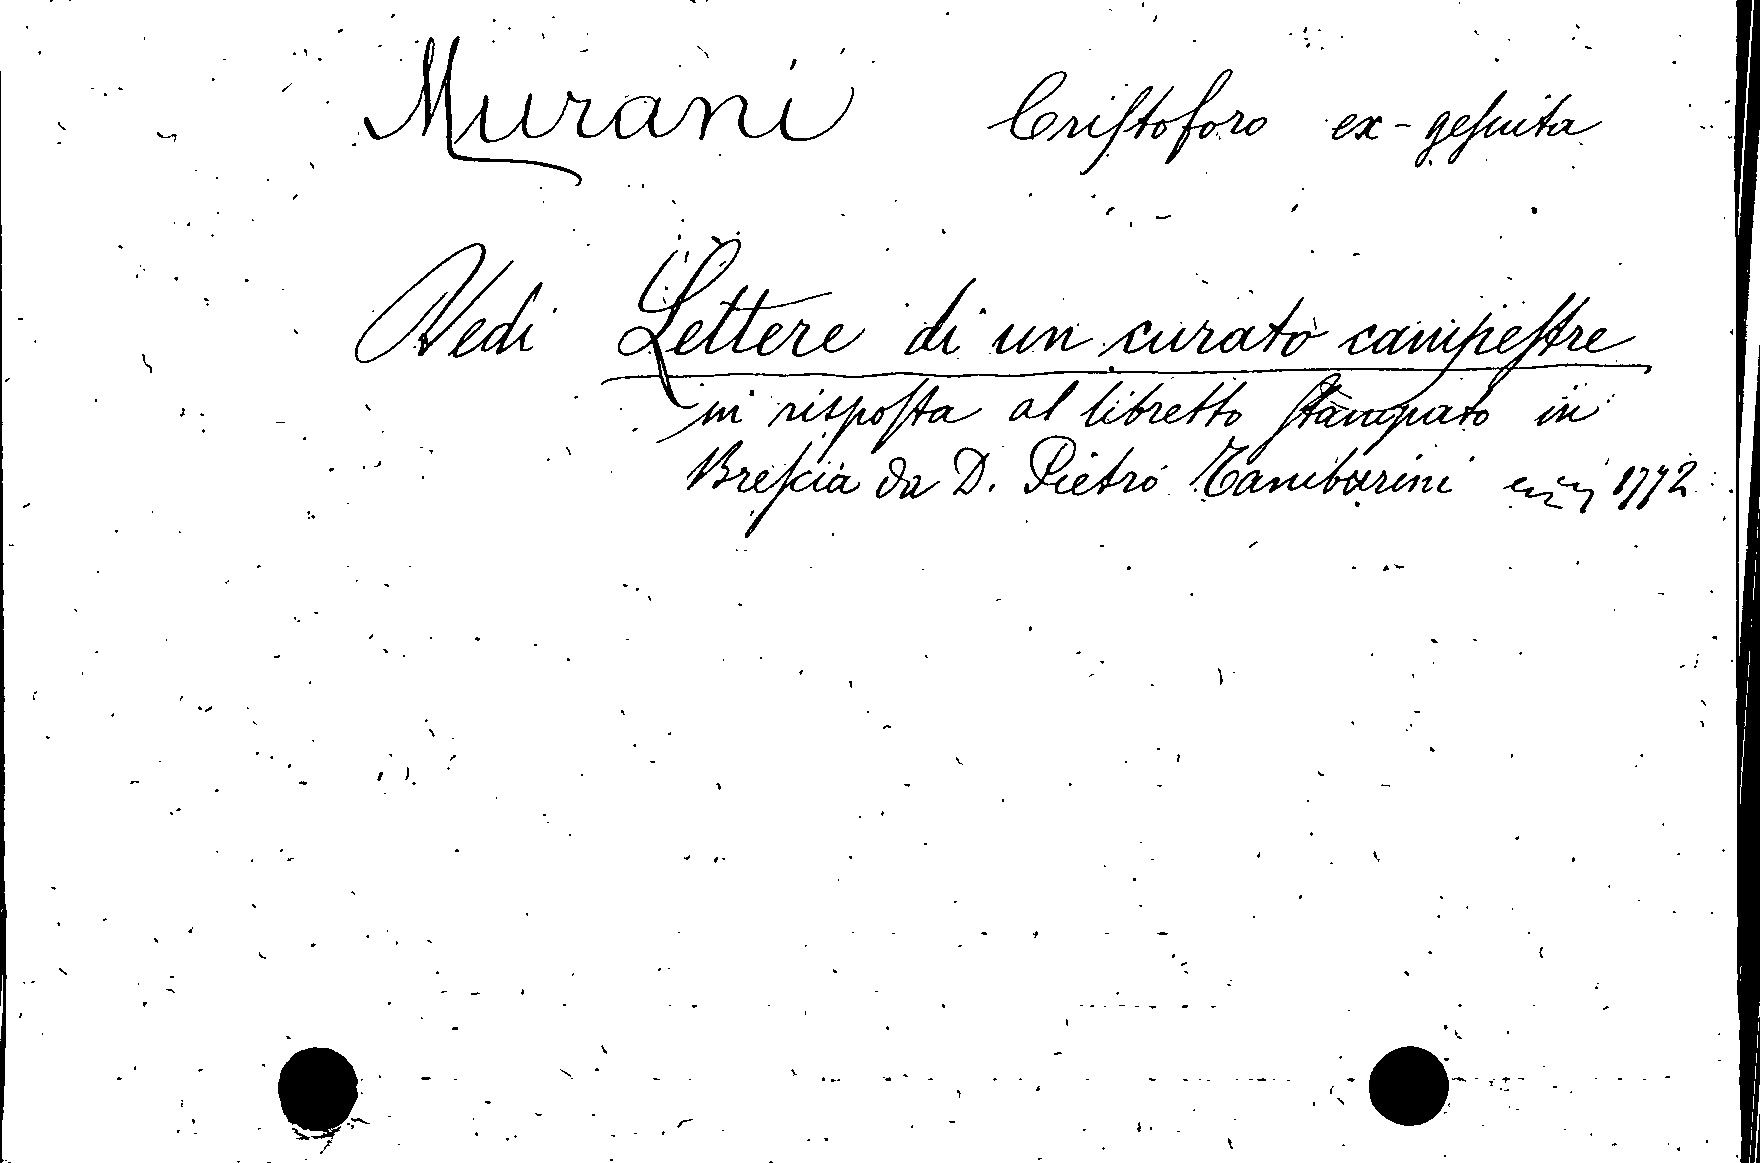 Murani Criſtoforo ex-geſuita
Vedi Lettere di un curato campeſtre
in riſpoſta al libretto ſtampato in
Breſcia da D. Pietro Tamburini 1772